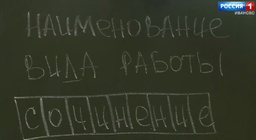 РОССИЯ 1
ИВАНОВО
НАИМЕНОВАНИЕ
ВИДА РАБОТЫ
СОЧИНЕНИЕ